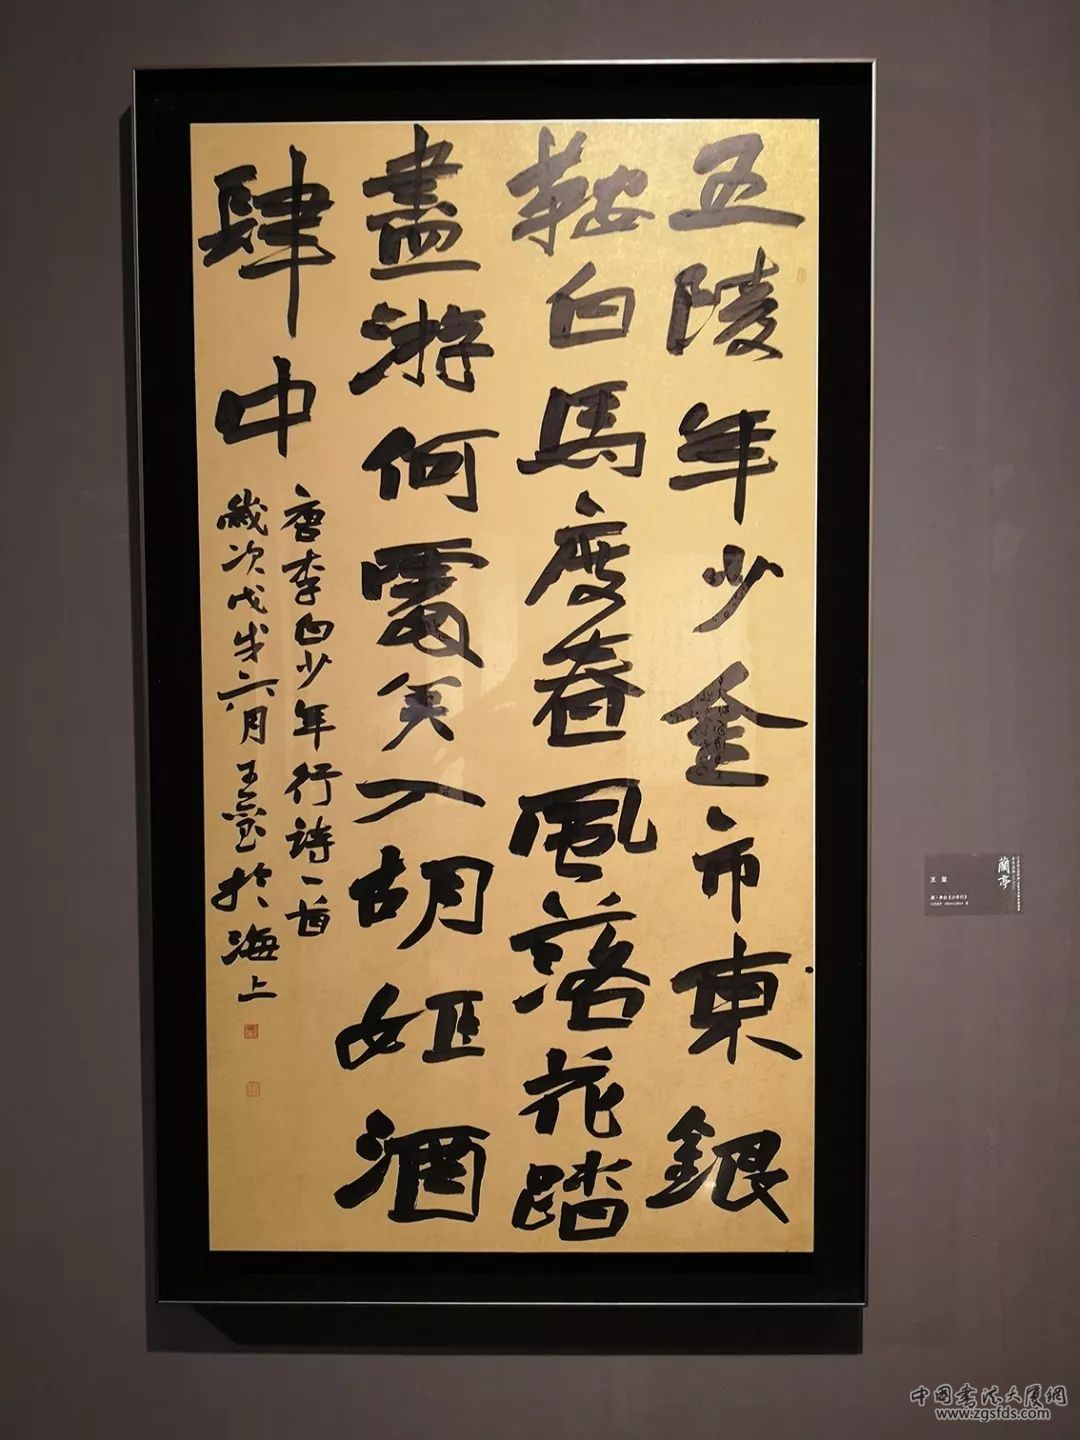 五陵年少金市東銀
鞍白馬度春風落花踏
盡游何處笑入胡姬酒
肆中
唐李白少年行詩一首
歲次戊戌六月王於海上
蘭亭
王
唐·李白《少年行》
中國書法大廈網
www.zgsfds.com